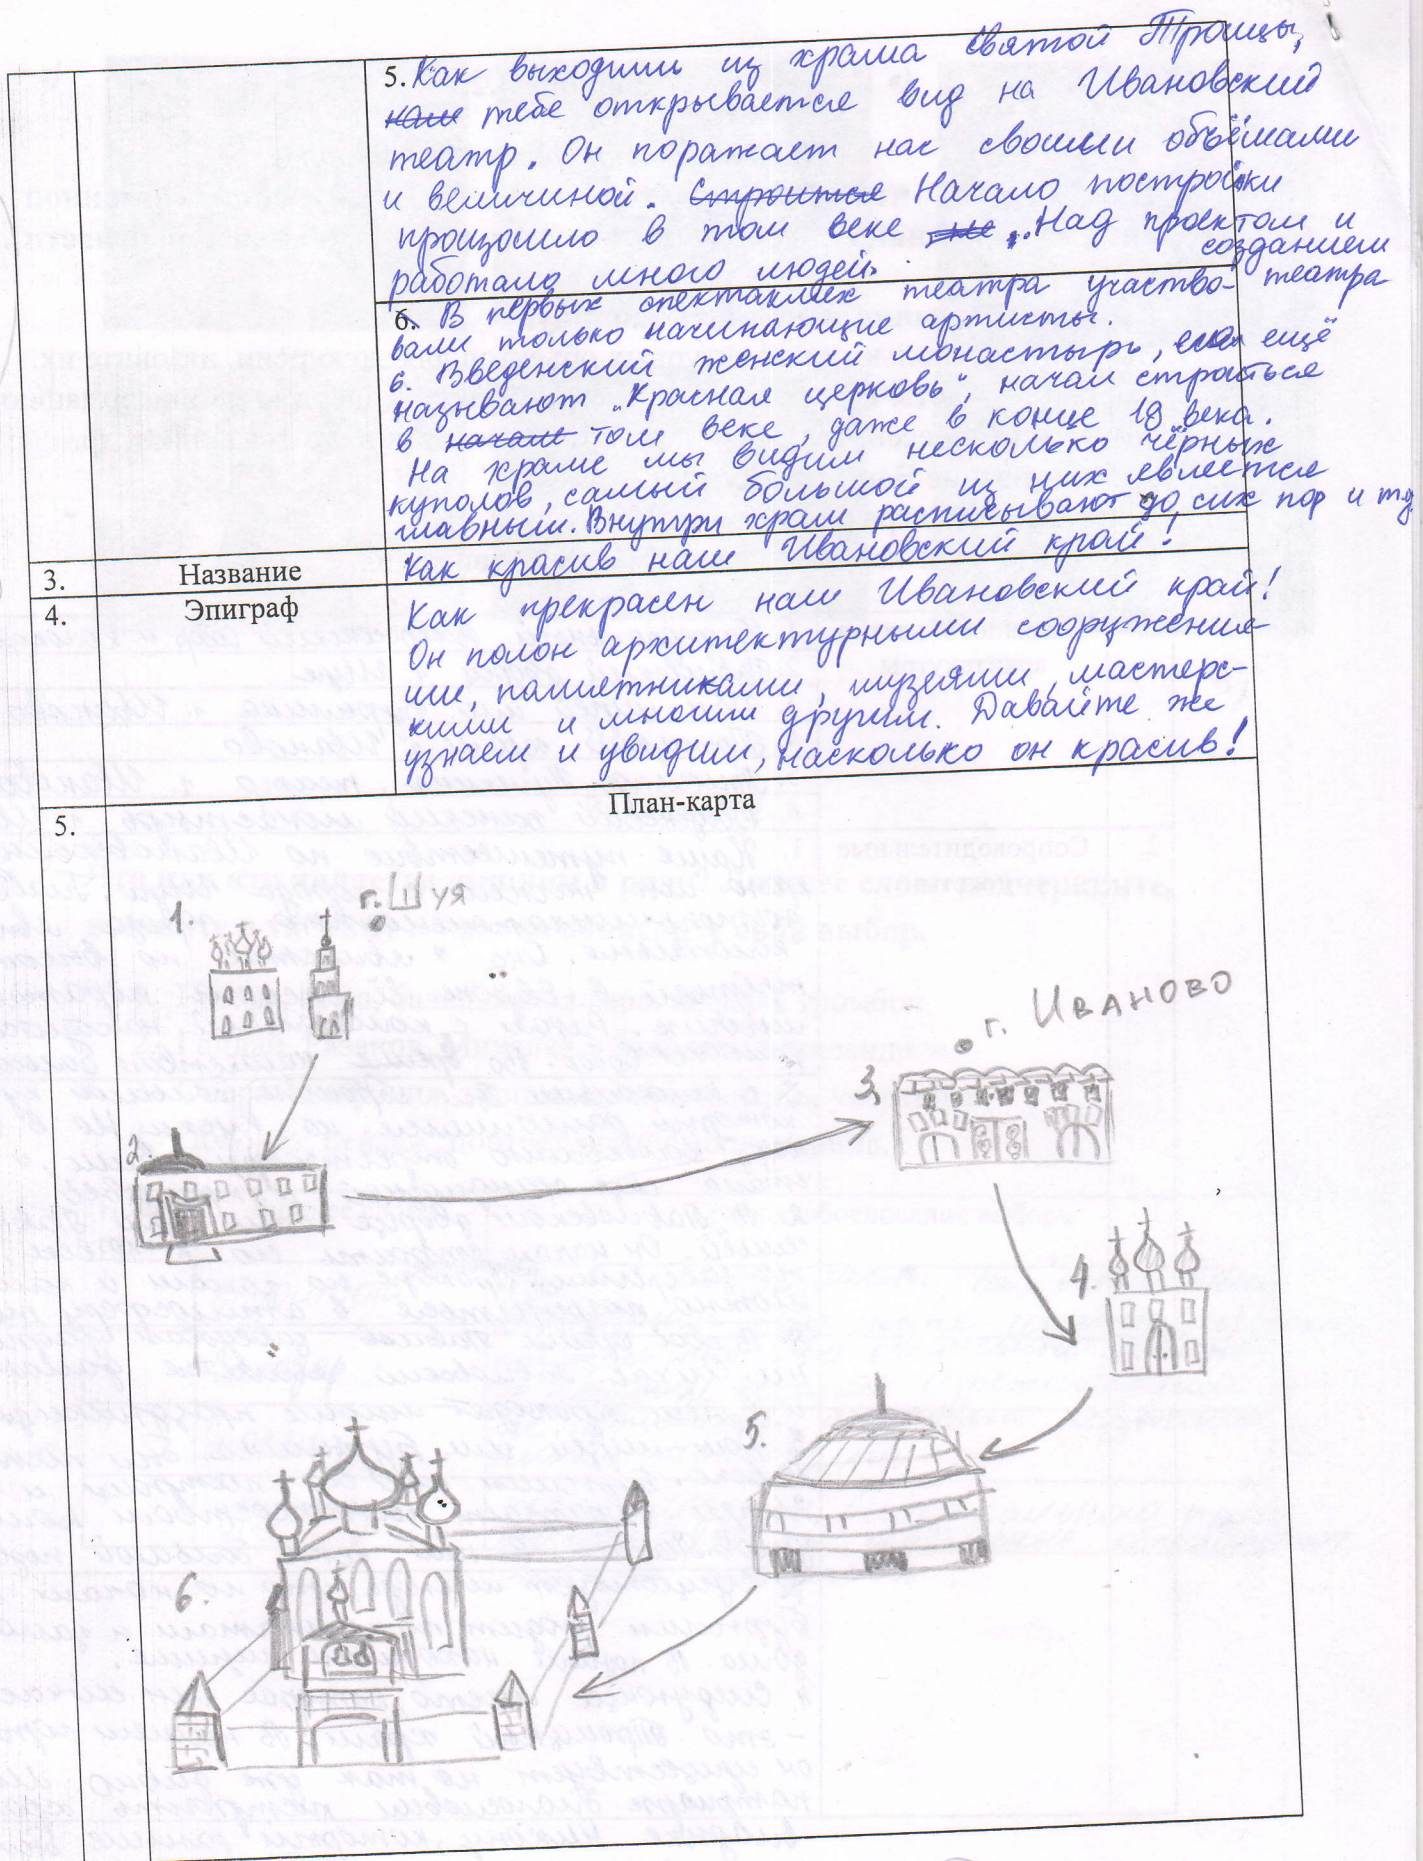 5. Как выходишь из храма святой Троицы,
тебе открывается вид на Ивановский
театр. Он поражает нас своими объёмами
и величиной. Строится Начало постройки
произошло в том веке же. Над проектом и
созданием
работало много людей.
театра
6. В первых спектаклях театра участво-
вали только начинающие артисты.
6. Введенский женский монастырь, ещё
называют „Красная церковь", начал строиться
в начале том веке, даже в конце 19 века.
На храме мы видим несколько чёрных
куполов, самый большой из них является
главным. Внутри храм расписывают до сих пор и тд.
3. Название Как красив наш Ивановский край!
4. Эпиграф Как прекрасен наш Ивановский край!
Он полон архитектурными сооружения-
ми, памятниками, музеями, мастерс-
кими и многим другим. Давайте же
узнаем и увидим, насколько он красив!
5. План-карта
г. Шуя
1.
г. Иваново
3.
2
4.
5.
6.